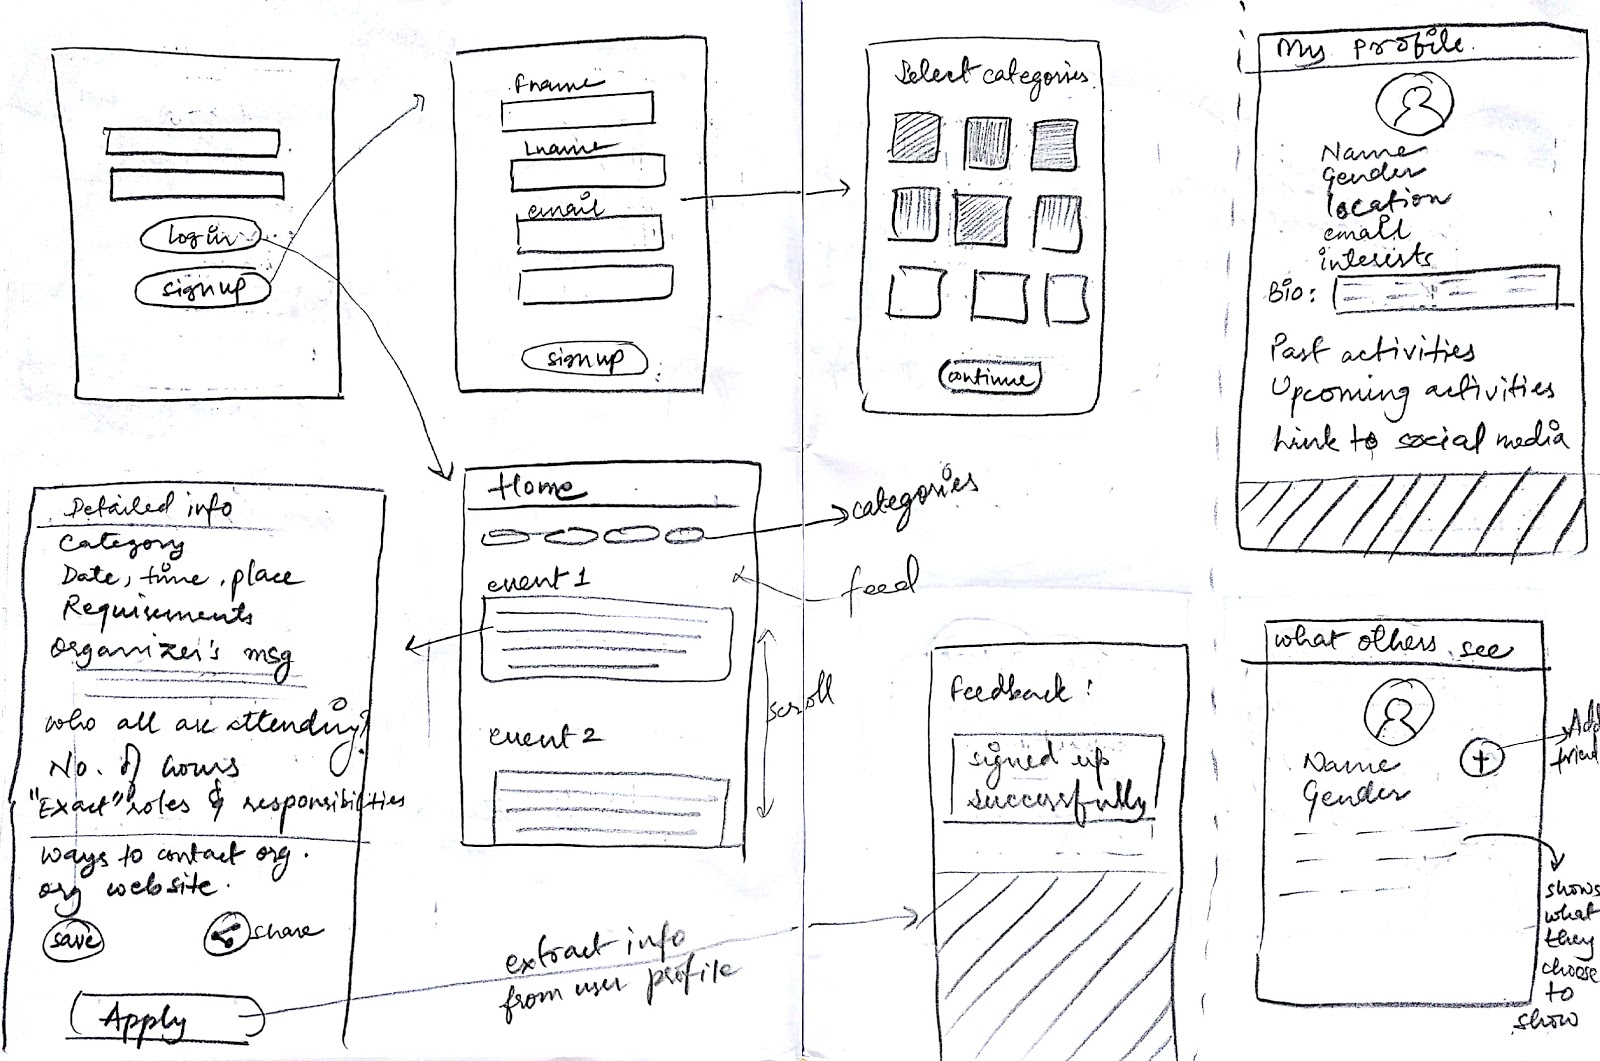 log in
sign up
Fname
Lname
email
sign up
Select categories
continue
My profile
Name
Gender
location
email
interests
Bio:
Past activities
Upcoming activities
Link to social media
Detailed info
Category
Date, time, place
Requirements
Organizer's msg
who all are attending?
No. of hours
"Exact" roles & responsibilities
ways to contact org.
org website.
save
share
Apply
extract info
from user profile
Home
categories
event 1
feed
scroll
event 2
Feedback:
signed up
successfully
what others see
Name
Gender
+
Add
friend
shows
what
they
choose
to
show